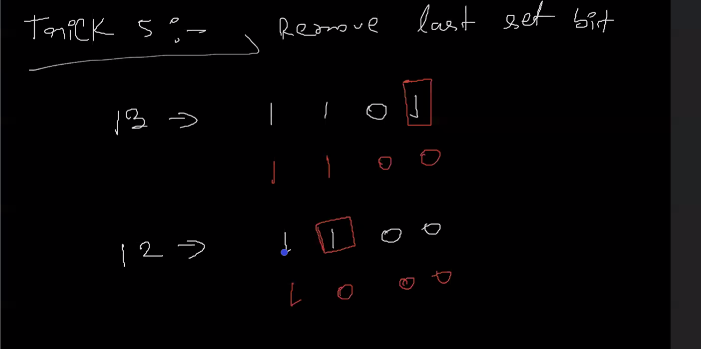 Trick 5 :- Remove last set bit
13 → 1 1 0 1
1 1 0 0
12 → 1 1 0 0
1 0 0 0